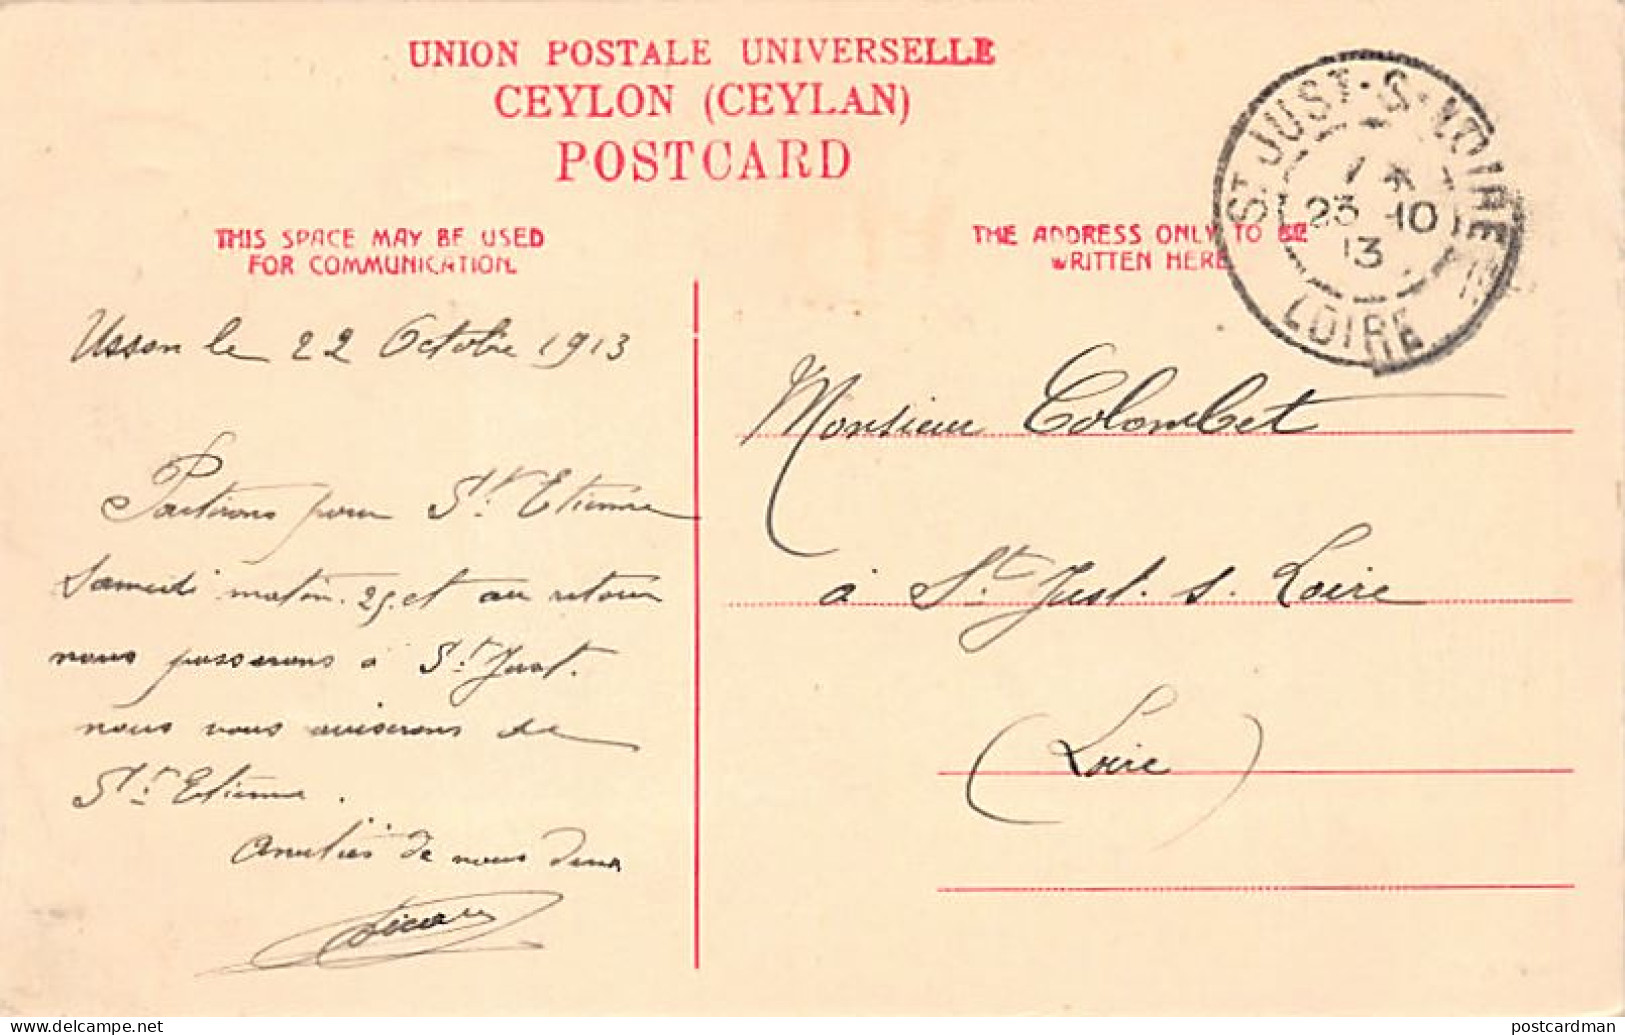 UNION POSTALE UNIVERSELLE
CEYLON (CEYLAN)
POSTCARD
THIS SPACE MAY BE USED
FOR COMMUNICATION.
THE ADDRESS ONLY TO BE
WRITTEN HERE
ST JUST-S-LOIRE
23 -10
13
LOIRE
Usson le 22 Octobre 1913
Partirons pour St Etienne
Samedi matin 25, et au retour
nous passerons à St Just.
nous vous aviserons de
St Etienne.
Amitiés de nous deux
Monsieur Colombet
à St Just. s. Loire
(Loire)
postcardman
www.delcampe.net